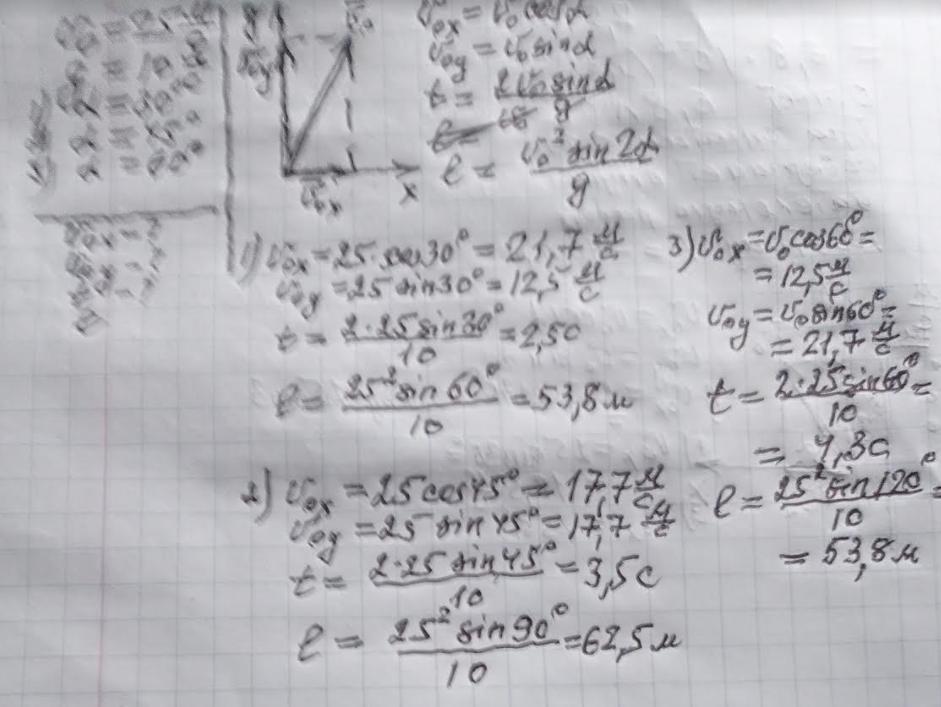 v₀ = 25 м/с
v₀y
v₀
v₀x
x
v₀x = v₀ cosα
v₀y = v₀ sinα
t = 2v₀ sinα / g
l = v₀² sin2α / g
1) v₀x = 25·cos30° = 21,7 м/с
v₀y = 25 sin30° = 12,5 м/с
t = 2·25 sin30° / 10 = 2,5 с
l = 25² sin60° / 10 = 53,8 м
2) v₀x = 25 cos45° = 17,7 м/с
v₀y = 25 sin45° = 17,7 м/с
t = 2·25 sin45° / 10 = 3,5 с
l = 25² sin90° / 10 = 62,5 м
3) v₀x = v₀ cos60° =
= 12,5 м/с
v₀y = v₀ sin60° =
= 21,7 м/с
t = 2·25 sin60° / 10 =
= 4,3 с
l = 25² sin120° / 10 =
= 53,8 м